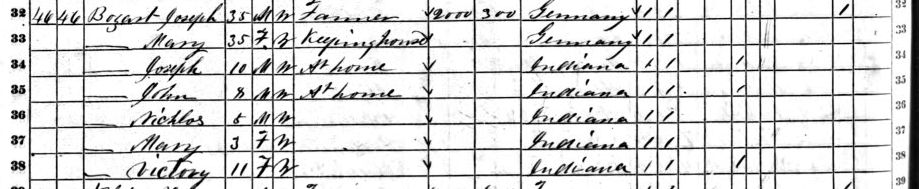 32 46 46 Bogart Joseph 35 M W Farmer 2000 300 Germany 1 1 1 32
33 — Mary 35 F W Keeping house Germany 1 1 33
34 — Joseph 10 M W At home Indiana 1 1 1 34
35 — John 8 M W At home Indiana 1 1 1 35
36 — Nicklos 5 M W Indiana 1 1 36
37 — Mary 3 F W Indiana 1 1 37
38 — Victory 11 F W Indiana 1 1 1 38
39